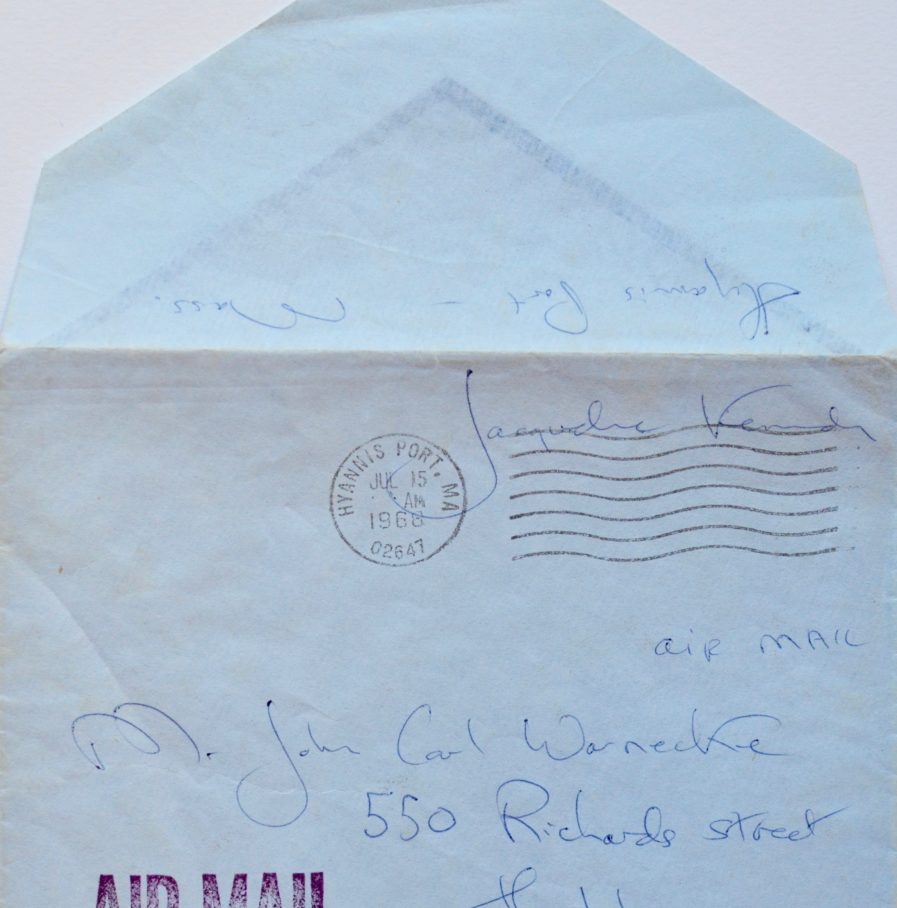 Hyannis Port - Mass.
Jacqueline Kennedy
HYANNIS PORT, MA
JUL 15
AM
1968
02647
AIR MAIL
Mr. John Carl Warnecke
550 Richards street
AIR MAIL